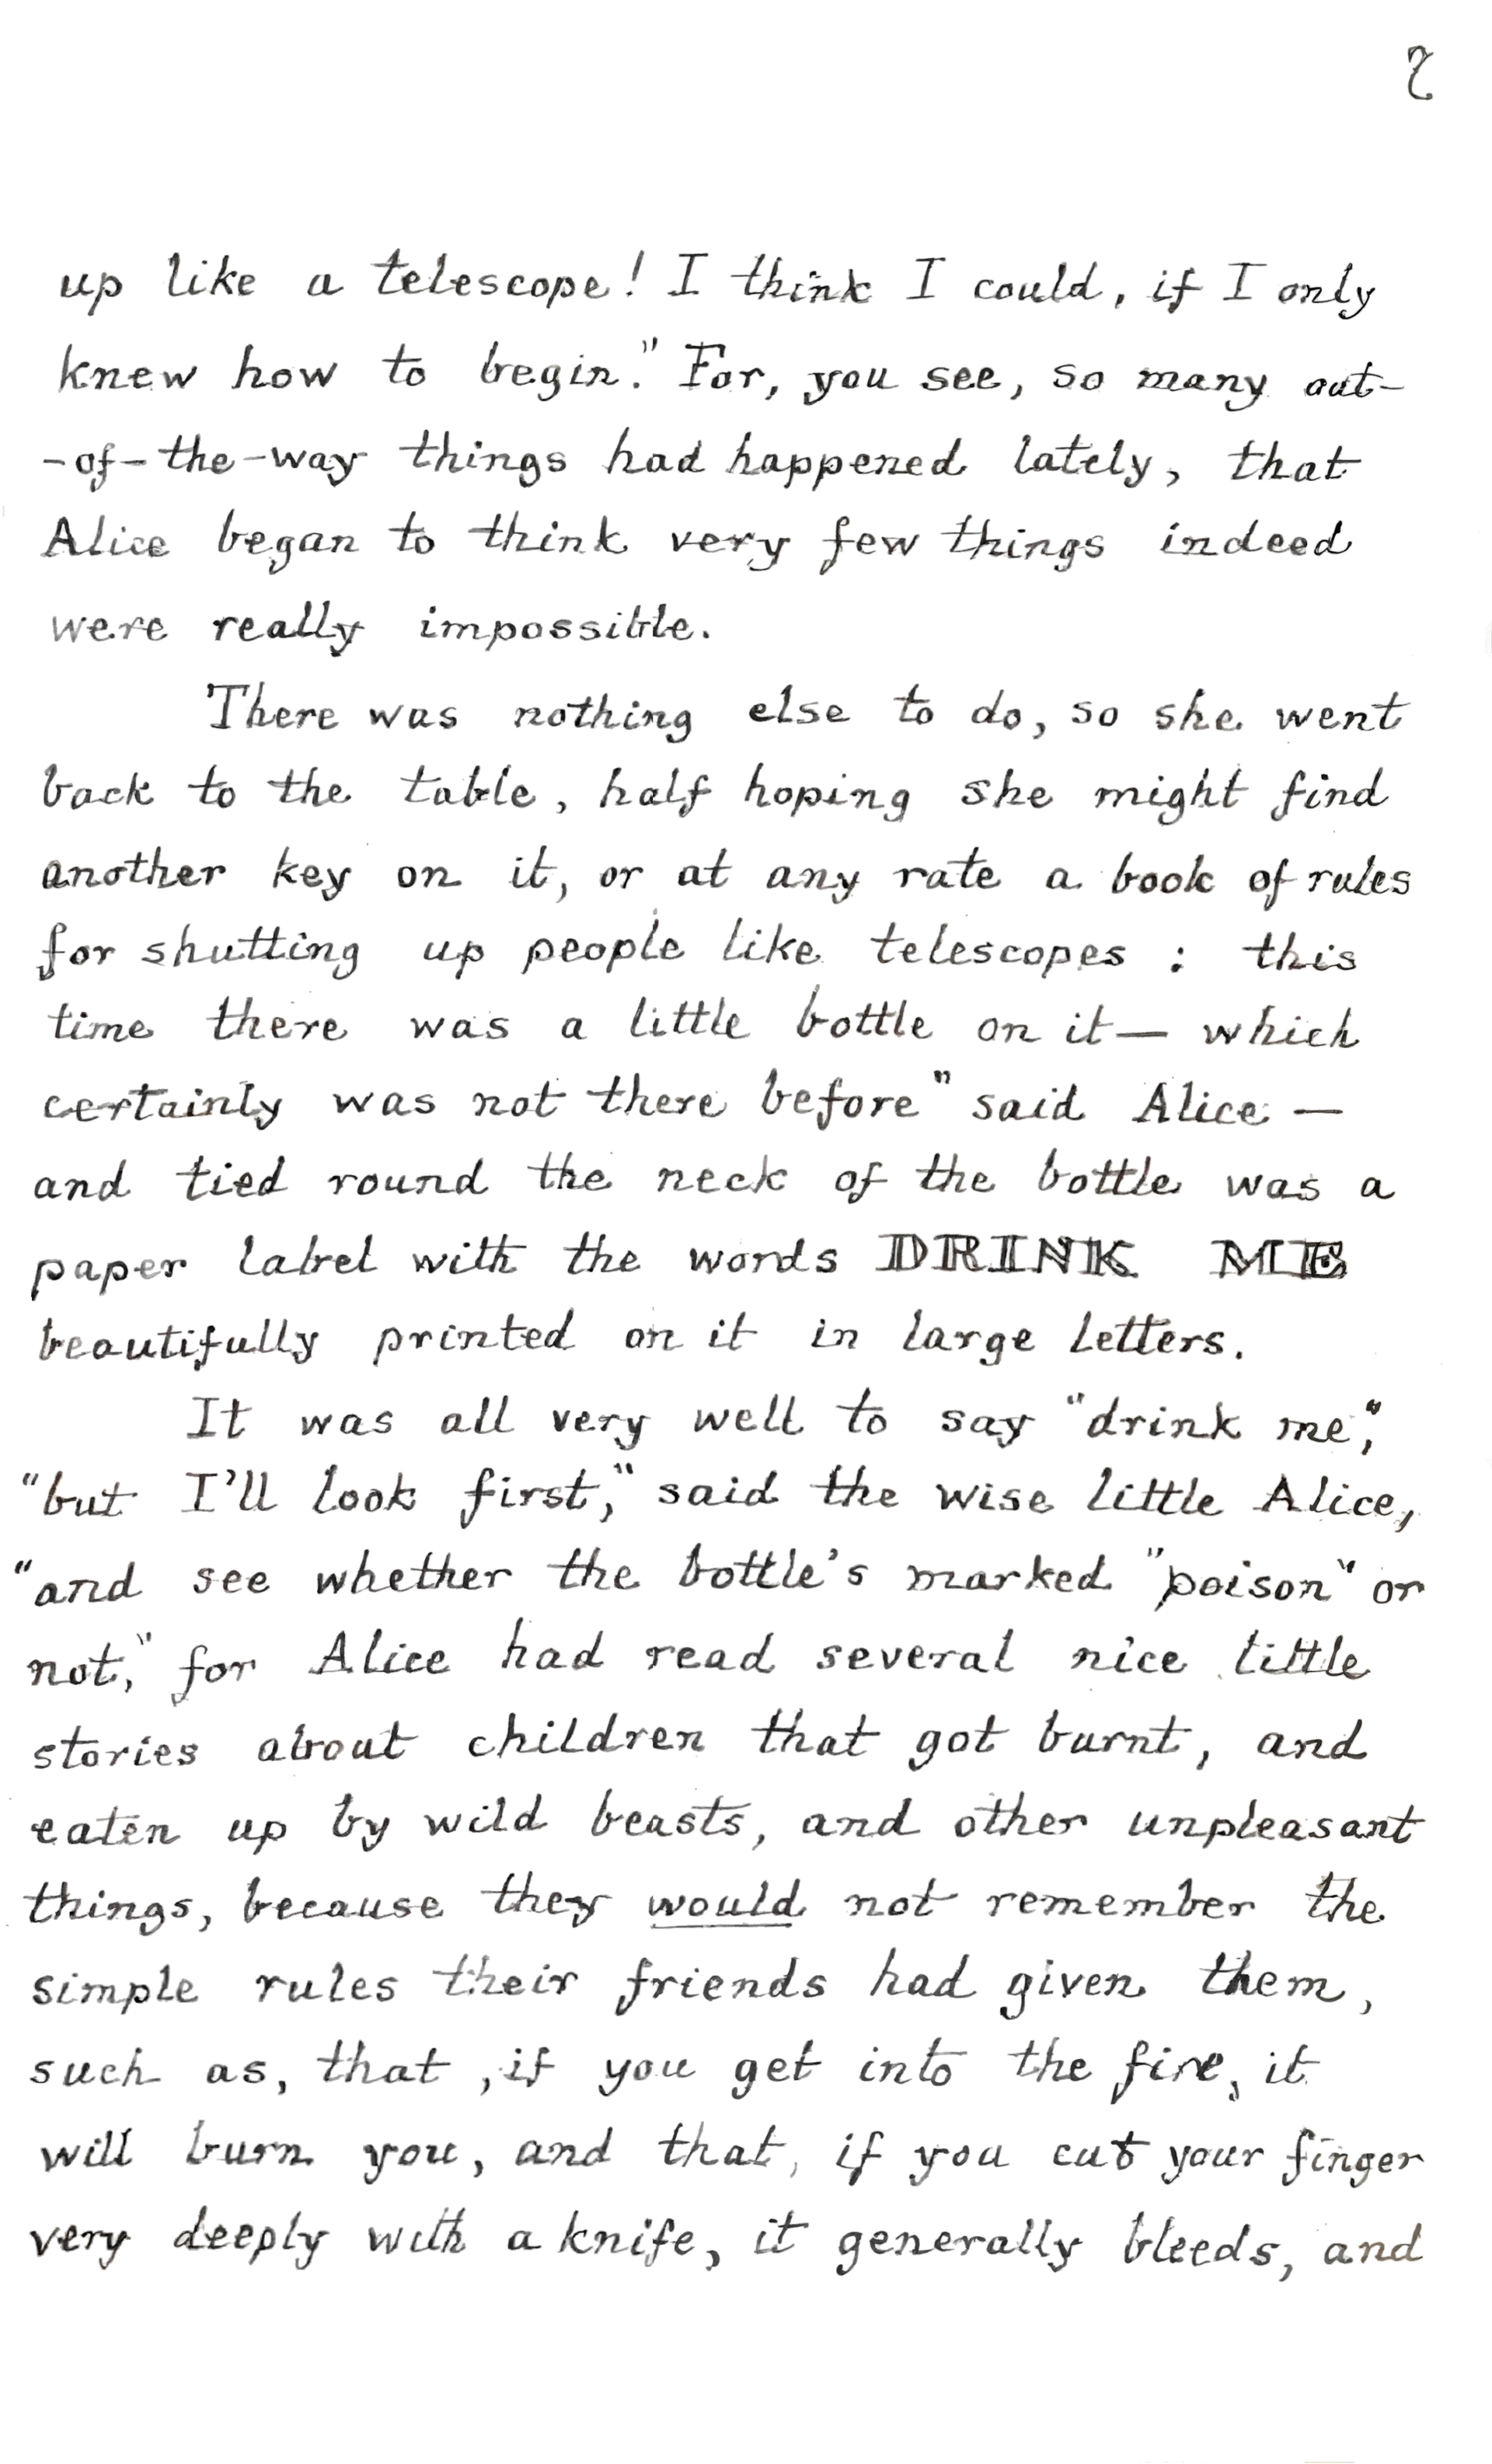 2
up like a telescope! I think I could, if I only
knew how to begin." For, you see, so many out-
-of-the-way things had happened lately, that
Alice began to think very few things indeed
were really impossible.
There was nothing else to do, so she went
back to the table, half hoping she might find
another key on it, or at any rate a book of rules
for shutting up people like telescopes : this
time there was a little bottle on it — which
certainly was not there before" said Alice —
and tied round the neck of the bottle was a
paper label with the words DRINK ME
beautifully printed on it in large letters.
It was all very well to say "drink me",
"but I'll look first," said the wise little Alice,
"and see whether the bottle's marked "poison" or
not," for Alice had read several nice little
stories about children that got burnt, and
eaten up by wild beasts, and other unpleasant
things, because they would not remember the
simple rules their friends had given them,
such as, that , if you get into the fire, it
will burn you, and that, if you cut your finger
very deeply with a knife, it generally bleeds, and